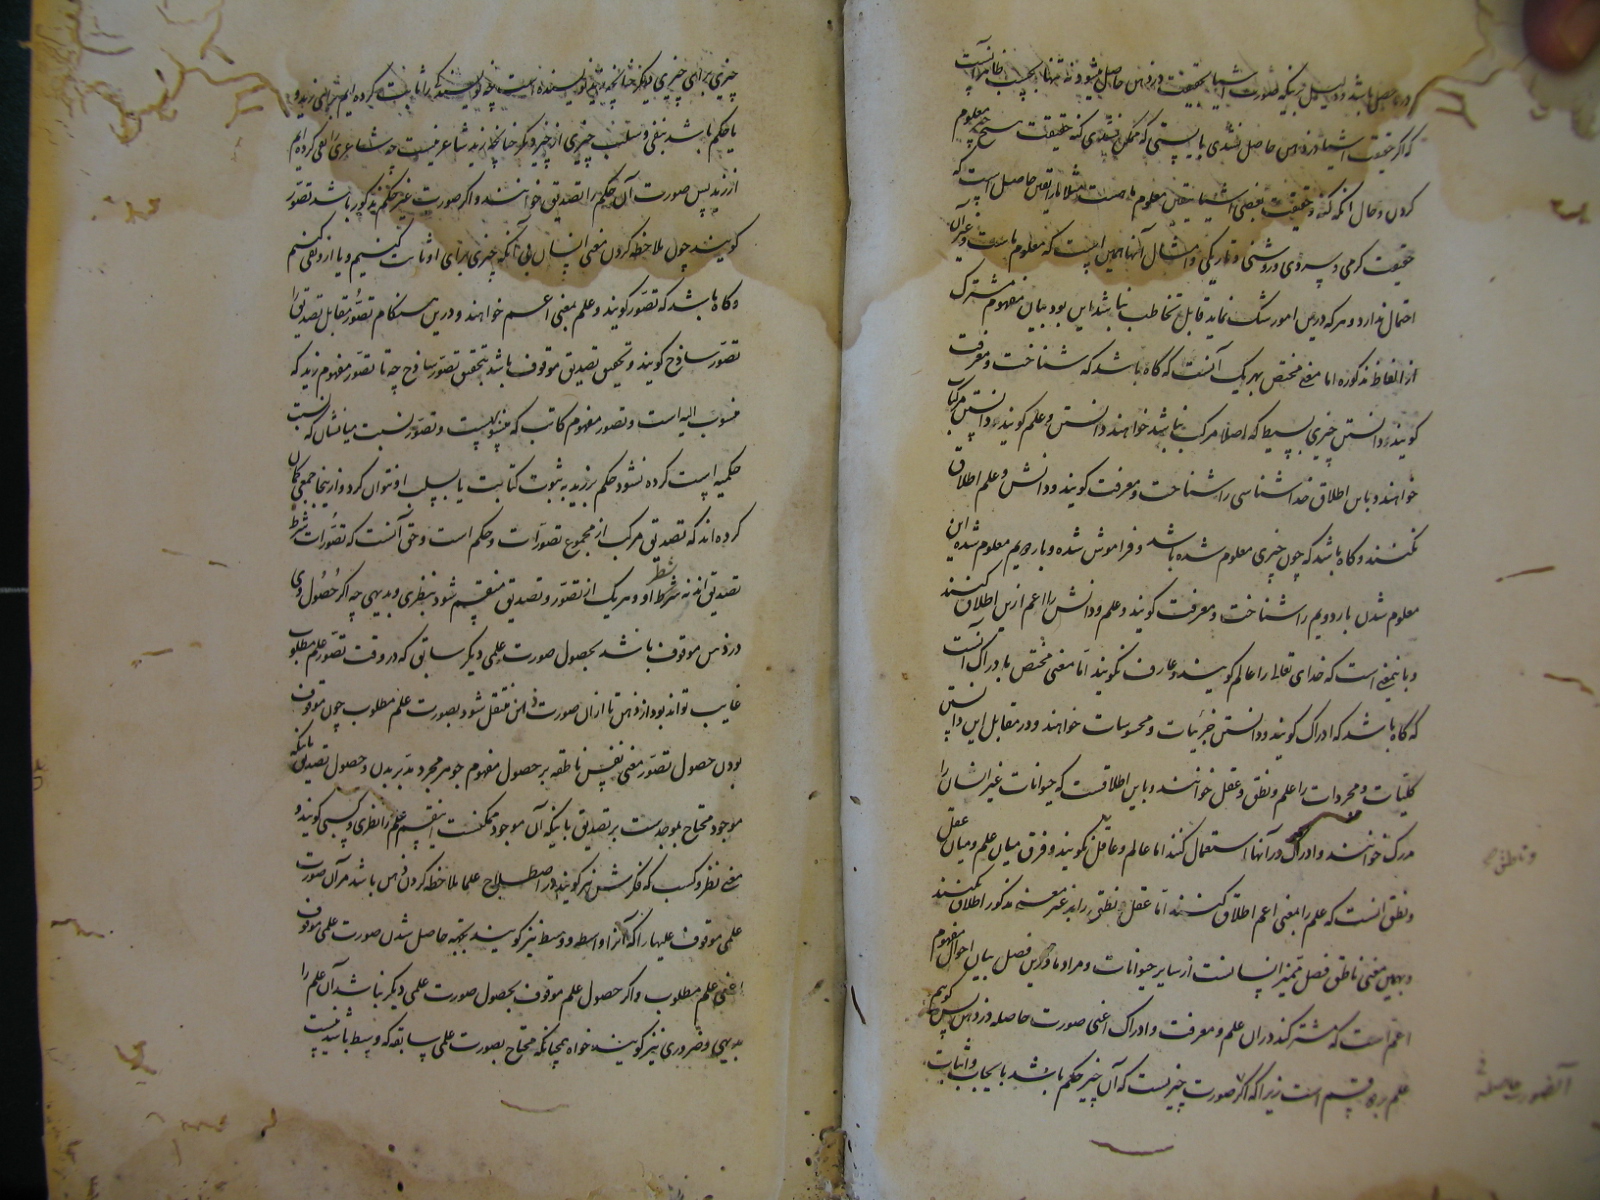 که اگر حقیقت اشیا در ذهن حاصل نشدی بایستی که ممکن نبودی که حقیقت هیچ چیز معلوم
کردن و حال آنکه کنه و حقیقت بعضی اشیا بیقین معلوم ماست مثلا ما را یقین حاصل است که
حقیقت گرمی و سردی و روشنی و تاریکی و امثال آنها همین است که معلوم ماست و غیر آن
احتمال ندارد و هر که درین امور شک نماید قابل تخاطب نباشد این بود بیان مفهوم مشترک
از الفاظ مذکوره اما معنی مختص بهر یک آنست که گاه باشد که شناخت و معرفت
گویند و دانستن چیزی بسیط که اصلا مرکب نباشد خواهند و دانستن و علم گویند و دانستن مرکبات
خواهند و باین اطلاق خداشناسی را شناخت و معرفت گویند و دانش و علم اطلاق
نکنند و گاه باشد که چون چیزی معلوم شده باشد و فراموش شده و بار دویم معلوم شده این
معلوم شدن بار دویم را شناخت و معرفت گویند و علم و دانش را اعم ازین اطلاق کنند
و باینمعنی است که خدای تعالی را عالم گویند و عارف نگویند اما معنی مختص بادراک آنست
که گاه باشد که ادراک گویند و دانستن جزئیات و محسوسات خواهند و در مقابل این دانستن
کلیات و مجردات را علم و نطق و عقل خوانند و باین اطلاقست که حیوانات غیر انسان را
مدرک خوانند و ادراک در آنها استعمال کنند اما عالم و عاقل نگویند و فرق میان علم و میان عقل
و نطق آنست که علم را بمعنی اعم اطلاق کنند اما عقل و نطق را بغیر معنی مذکور اطلاق نکنند
و بهمین معنی ناطق فصل ممیز انسانست از سایر حیوانات و مراد ما درین فصل بیان احوال مفهوم
اعم است که مشترکند در آن علم و معرفت و ادراک اعنی صورت حاصله در ذهن پس گوییم
علم بر دو قسم است زیرا که اگر صورت چیزیست که آن چیز حکم باشد بایجاب و اثبات
و ناطق
آنصورت حاصله
چیزی برای چیزی دیگر چنانچه زید نویسنده است چه نویسندگی را ثابت کرده ایم برای زید و
یا حکم باشد بنفی و سلب چیزی از چیز دیگر چنانچه زید شاعر نیست چه شاعری را نفی کرده ایم
از زید پس صورت آن حکم را تصدیق خوانند و اگر صورت غیر حکم مذکور باشد تصور
گویند چون ملاحظه کردن معنی انسان بی آنکه چیزی برای او ثابت کنیم و یا از او نفی کنیم
و گاه باشد که تصور گویند و علم بمعنی اعم خواهند و درین هنگام تصور مقابل تصدیق را
تصور ساذج گویند و تحقق تصدیق موقوف باشد بتحقق تصور ساذج چه تا تصور مفهوم زید که
منسوب الیه است و تصور مفهوم کاتب که منسوبست و تصور نسبت میانشان که نسبت
حکمیه است کرده نشود حکم بر زید بثبوت کتابت یا بسلب او نتوان کرد و ازینجا جمعی گمان
کرده اند که تصدیق مرکب از مجموع تصورات و حکم است و حق آنست که تصورات شرط
تصدیق اند نه شطر او و هر یک از تصور و تصدیق منقسم شود بنظری و بدیهی چه اگر حصول وی
در ذهن موقوف باشد بحصول صورت علمی دیگر سابق که در وقت تصور علم مطلوب
غایب تواند بود از ذهن تا از آن صورت ذهن منتقل شود بصورت علم مطلوب چون موقوف
بودن حصول تصور معنی نفس ناطقه بر حصول مفهوم جوهر مجرد مدبر بدن و حصول تصدیق باینکه
موجود محتاج بموجدست بر تصدیق باینکه آن موجود ممکنست اینقسم علم را نظری و کسبی گویند و
معنی نظر و کسب که فکرش نیز گویند در اصطلاح علما ملاحظه کردن ذهن باشد مر آن صورت
علمی موقوف علیها را که آنرا واسطه و وسط نیز گویند بجهة حاصل شدن صورت علمی موقوف
اعنی علم مطلوب و اگر حصول علم موقوف بحصول صورت علمی دیگر نباشد آن علم را
بدیهی و ضروری نیز گویند خواه همچنانکه محتاج بصورت علمی سابقه که وسط باشد نیست